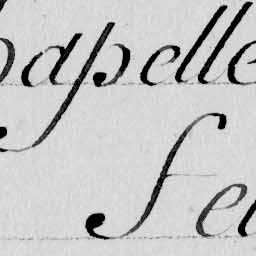 hapelle
fe